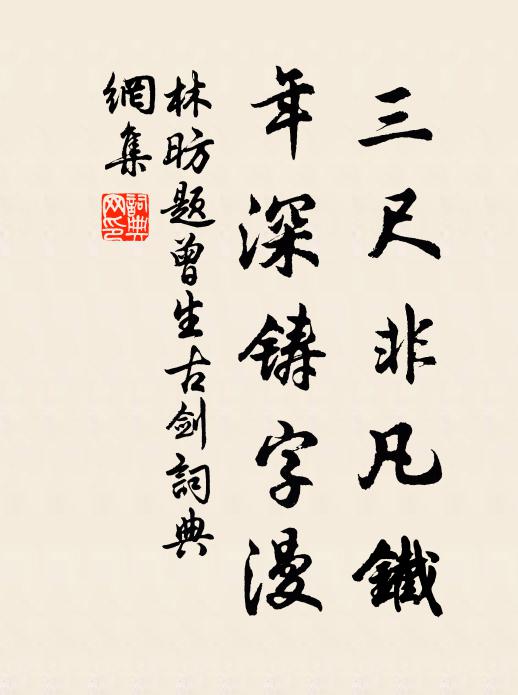 三尺非凡鐵
年深铸字漫
林昉题曾生古劍詞典
網集
詞典
网印